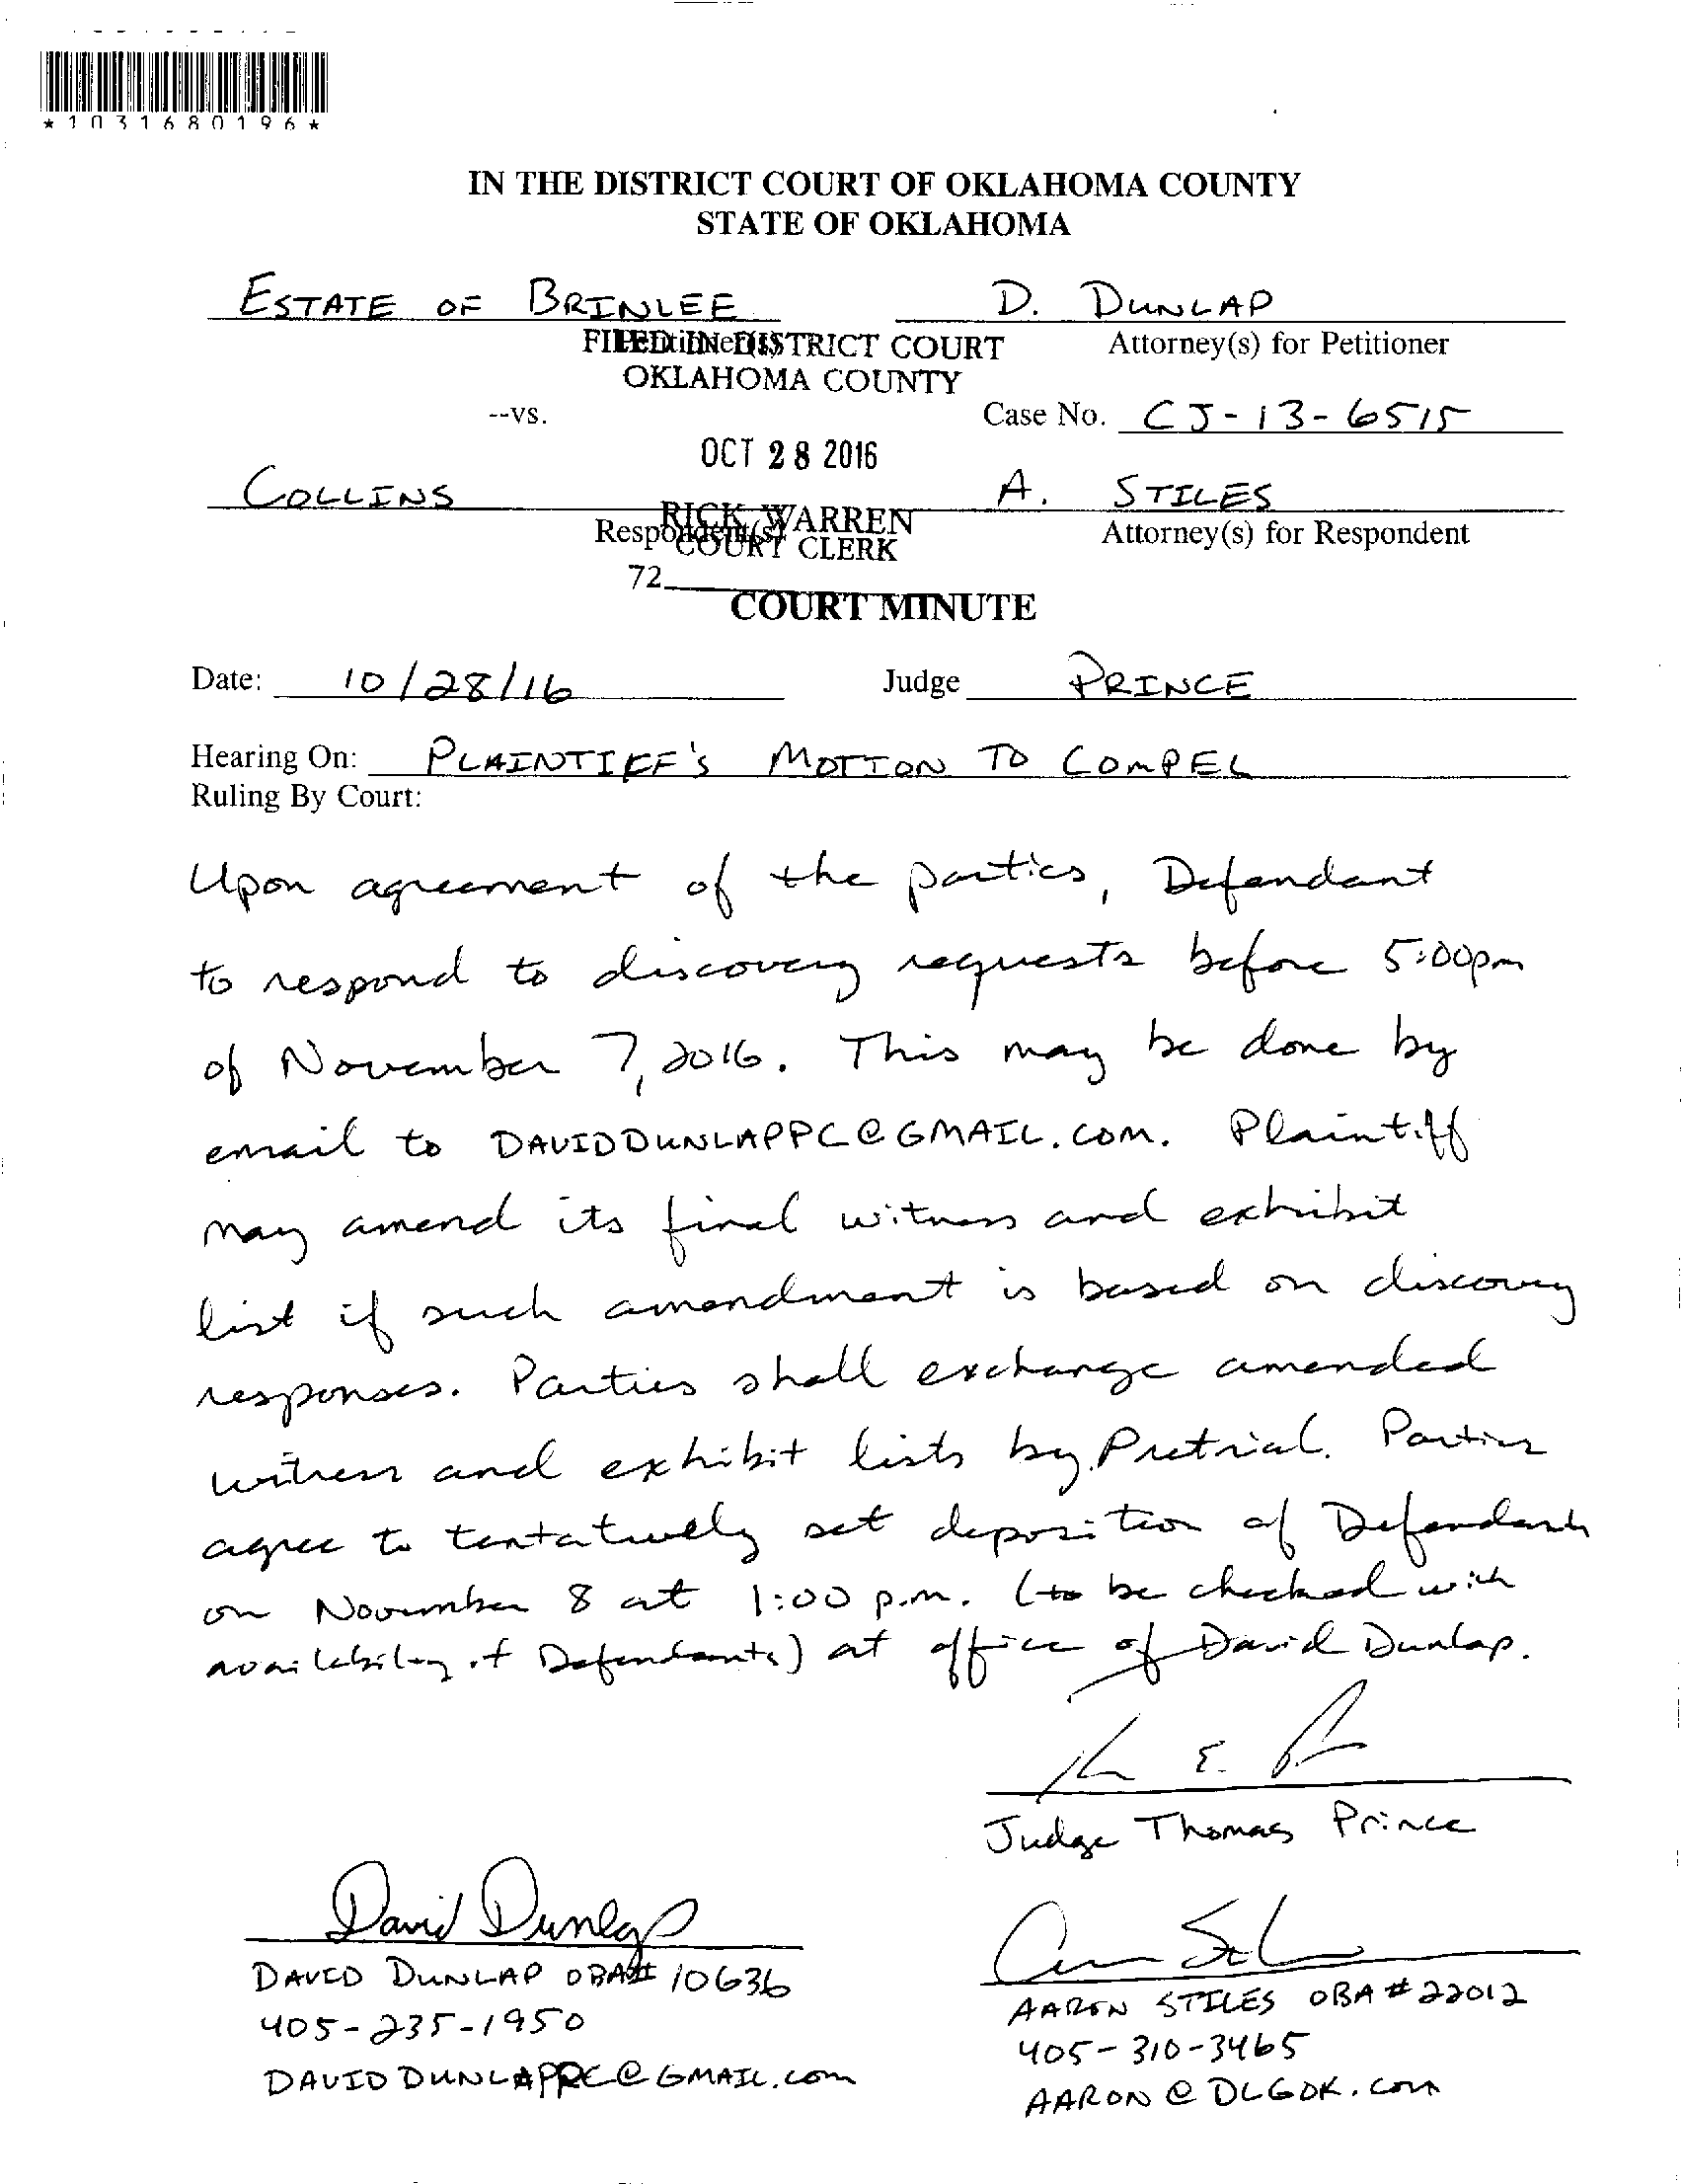 *1031680196*
IN THE DISTRICT COURT OF OKLAHOMA COUNTY
STATE OF OKLAHOMA
ESTATE OF BRINLEE D. DUNLAP
Petitioner(s) Attorney(s) for Petitioner
FILED IN DISTRICT COURT
OKLAHOMA COUNTY
--vs. Case No. CJ-13-6515
OCT 28 2016
COLLINS A. STILES
Respondent(s) Attorney(s) for Respondent
RICK WARREN
COURT CLERK
72
COURT MINUTE
Date: 10/28/16 Judge PRINCE
Hearing On: PLAINTIFF'S MOTION TO COMPEL
Ruling By Court:
Upon agreement of the parties, Defendant
to respond to discovery requests before 5:00pm
of November 7, 2016. This may be done by
email to DAVIDDUNLAPPC@GMAIL.COM. Plaintiff
may amend its final witness and exhibit
list if such amendment is based on discovery
responses. Parties shall exchange amended
witness and exhibit lists by Pretrial. Parties
agree to tentatively set deposition of Defendants
on November 8 at 1:00 p.m. (to be checked with
availability of Defendants) at office of David Dunlap.
Judge Thomas Prince
David Dunlap
DAVID DUNLAP OBA# 10636
405-235-1950
DAVIDDUNLAPPC@GMAIL.COM
AARON STILES OBA # 22012
405-310-3465
AARON@DLGOK.COM